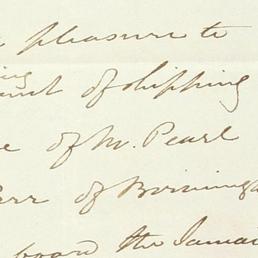 pleasure to
ing
of shipping
of Mr. Pearl
of Birmingh
board the Jamai